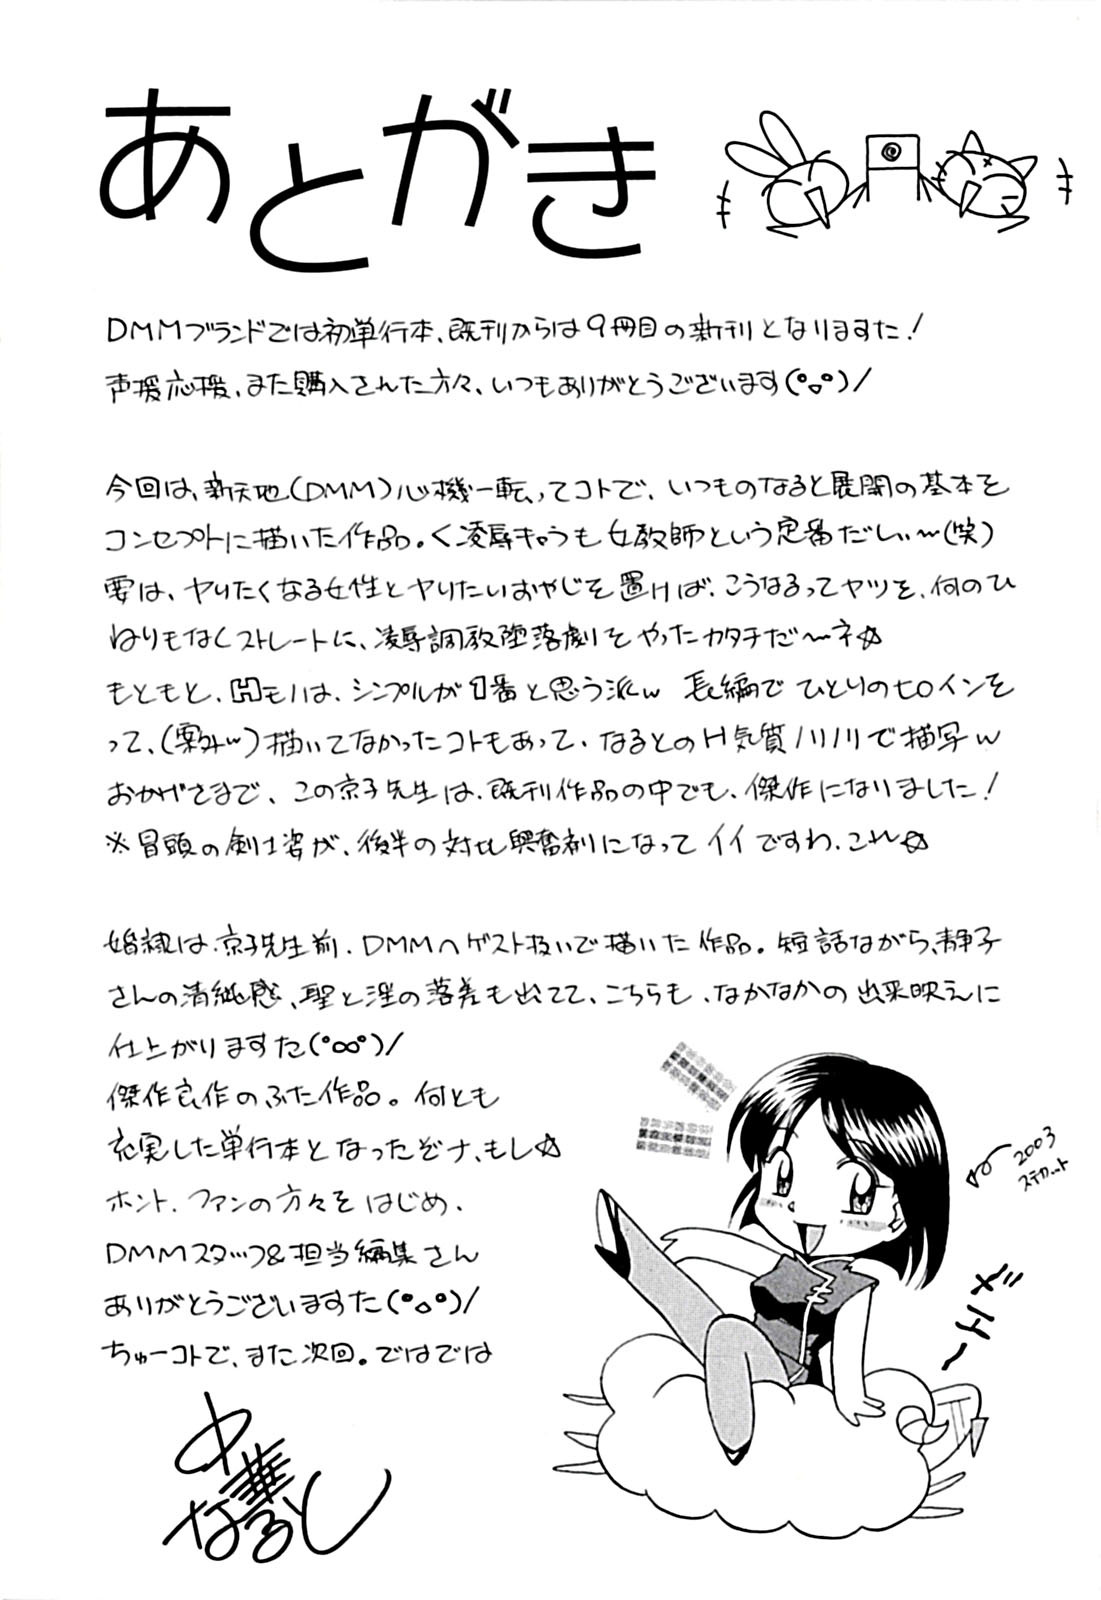 あとがき
DMMブランドでは初単行本、既刊からは9冊目の新刊となりますた!
声援応援、また購入された方々、いつもありがとうございます(°o°)/
今回は、新天地(DMM)心機一転ってコトで、いつものなると展開の基本を
コンセプトに描いた作品。く凌辱きゃらも女教師という定番だしぃ〜(笑)
要は、ヤりたくなる女性とヤりたいおやじを置けば、こうなるってヤツを、何のひ
ねりもなくストレートに、凌辱調教堕落劇をやったカタチだ〜ネ☆
もともと、Hモノは、シンプルが1番と思う派w 長編でひとりのヒロインを
って、(案外w)描いてなかったコトもあって、なるとのH気質ノリノリで描写w
おかげさまで、この京子先生は、既刊作品の中でも、傑作になりました!
※冒頭の剣士姿が、後半の対比興奮剤になってイイですわ、これ☆
婚隷は、京子先生前、DMMへゲスト扱いで描いた作品。短話ながら、静子
さんの清純感、聖と淫の落差も出てて、こちらも、なかなかの出来映えに
仕上がりますた(°∞°)/
傑作良作のふた作品。何とも
充実した単行本となったぞナ、もし☆
ホント、ファンの方々をはじめ、
DMMスタッフ&担当編集さん
ありがとうございますた(°o°)/
ちゅーコトで、また次回。ではでは
中華なると
2003
ステカット
メエ〜